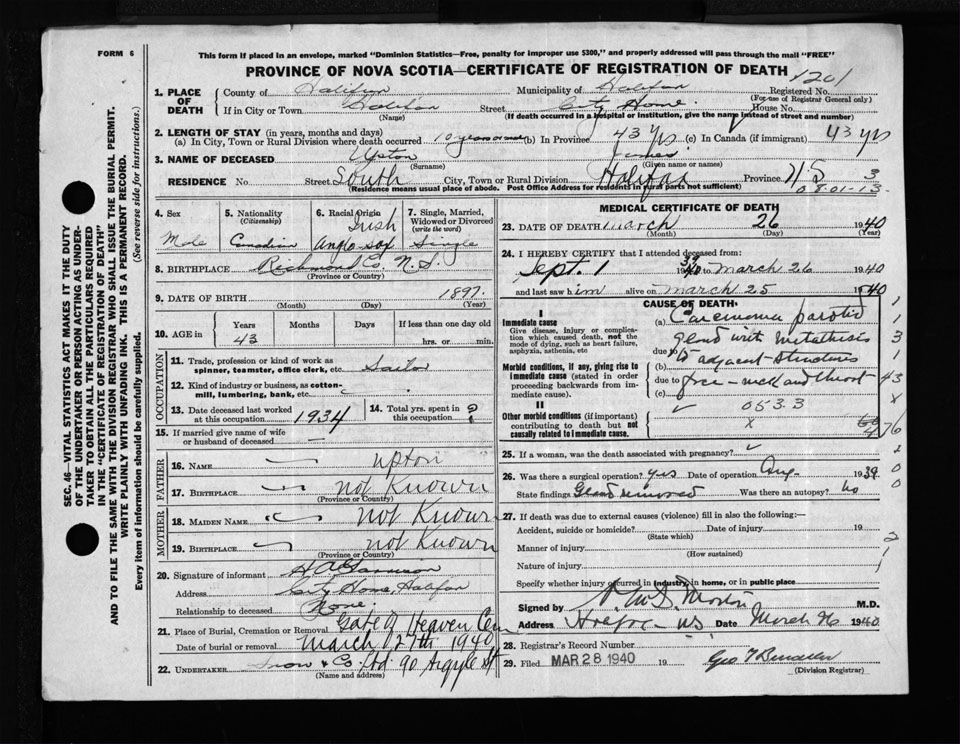 FORM 6
This form if placed in an envelope, marked "Dominion Statistics—Free, penalty for improper use $300," and properly addressed will pass through the mail "FREE"
PROVINCE OF NOVA SCOTIA—CERTIFICATE OF REGISTRATION OF DEATH 1201
1. PLACE OF DEATH County of Halifax Municipality of Halifax Registered No.
(For use of Registrar General only)
If in City or Town Halifax Street City Home House No.
(Name) (If death occurred in a hospital or institution, give the name instead of street and number)
2. LENGTH OF STAY (in years, months and days)
(a) In City, Town or Rural Division where death occurred 10 years or more (b) In Province 43 yrs (c) In Canada (if immigrant) 43 yrs
3. NAME OF DECEASED Upton James
(Surname) (Given name or names)
RESIDENCE No. Street South City, Town or Rural Division Halifax Province N S 3
(Residence means usual place of abode. Post Office Address for residents in rural parts not sufficient) 0 8 01-13-
4. Sex Male
5. Nationality (Citizenship) Canadian
6. Racial Origin Irish Anglo Sax
7. Single, Married, Widowed or Divorced (write the word) Single
8. BIRTHPLACE Richmond Co. N.S.
(Province or Country)
9. DATE OF BIRTH 1897
(Month) (Day) (Year)
10. AGE in Years 43 Months Days If less than one day old hrs. or min.
OCCUPATION
11. Trade, profession or kind of work as spinner, teamster, office clerk, etc. Sailor
12. Kind of industry or business, as cotton-mill, lumbering, bank, etc.
13. Date deceased last worked at this occupation 1934
14. Total yrs. spent in this occupation ?
15. If married give name of wife or husband of deceased —
FATHER
16. NAME Upton
17. BIRTHPLACE not Known
(Province or Country)
MOTHER
18. MAIDEN NAME not Known
19. BIRTHPLACE not Known
(Province or Country)
20. Signature of informant
Address City Home, Halifax
Relationship to deceased None.
21. Place of Burial, Cremation or Removal Gate of Heaven Cem
Date of burial or removal March 27th 1940
22. UNDERTAKER Snow & Co Ltd 90 Argyle St
(Name and address)
MEDICAL CERTIFICATE OF DEATH
23. DATE OF DEATH March 26 1940
(Month) (Day) (Year)
24. I HEREBY CERTIFY that I attended deceased from:
Sept. 1 1939 to March 26 1940
and last saw him alive on March 25 1940
CAUSE OF DEATH:
I
Immediate cause
Give disease, injury or complication which caused death, not the mode of dying, such as heart failure, asphyxia, asthenia, etc
Morbid conditions, if any, giving rise to immediate cause (stated in order proceeding backwards from immediate cause).
II
Other morbid conditions (if important) contributing to death but not causally related to immediate cause.
(a) Carcinoma parotid
gland with metathisis
due to
(b) to adjacent structures
due to face – neck and throat
(c)
053.3
25. If a woman, was the death associated with pregnancy?
26. Was there a surgical operation? Yes Date of operation Aug- 1939.
State findings Gland removed Was there an autopsy? no
27. If death was due to external causes (violence) fill in also the following:—
Accident, suicide or homicide? Date of injury 19
(State which)
Manner of injury
(How sustained)
Nature of injury
Specify whether injury occurred in industry, in home, or in public place
Signed by M.D.
Address Halifax N.S. Date March 26 1940
28. Registrar's Record Number
29. Filed MAR 28 1940 19
(Division Registrar)
SEC. 46—VITAL STATISTICS ACT MAKES IT THE DUTY OF THE UNDERTAKER OR PERSON ACTING AS UNDERTAKER TO OBTAIN ALL THE PARTICULARS REQUIRED IN THE "CERTIFICATE OF REGISTRATION OF DEATH" AND TO FILE THE SAME WITH THE DIVISION REGISTRAR WHO SHALL ISSUE THE BURIAL PERMIT.
WRITE PLAINLY WITH UNFADING INK. THIS IS A PERMANENT RECORD.
Every item of information should be carefully supplied. (See reverse side for instructions.)